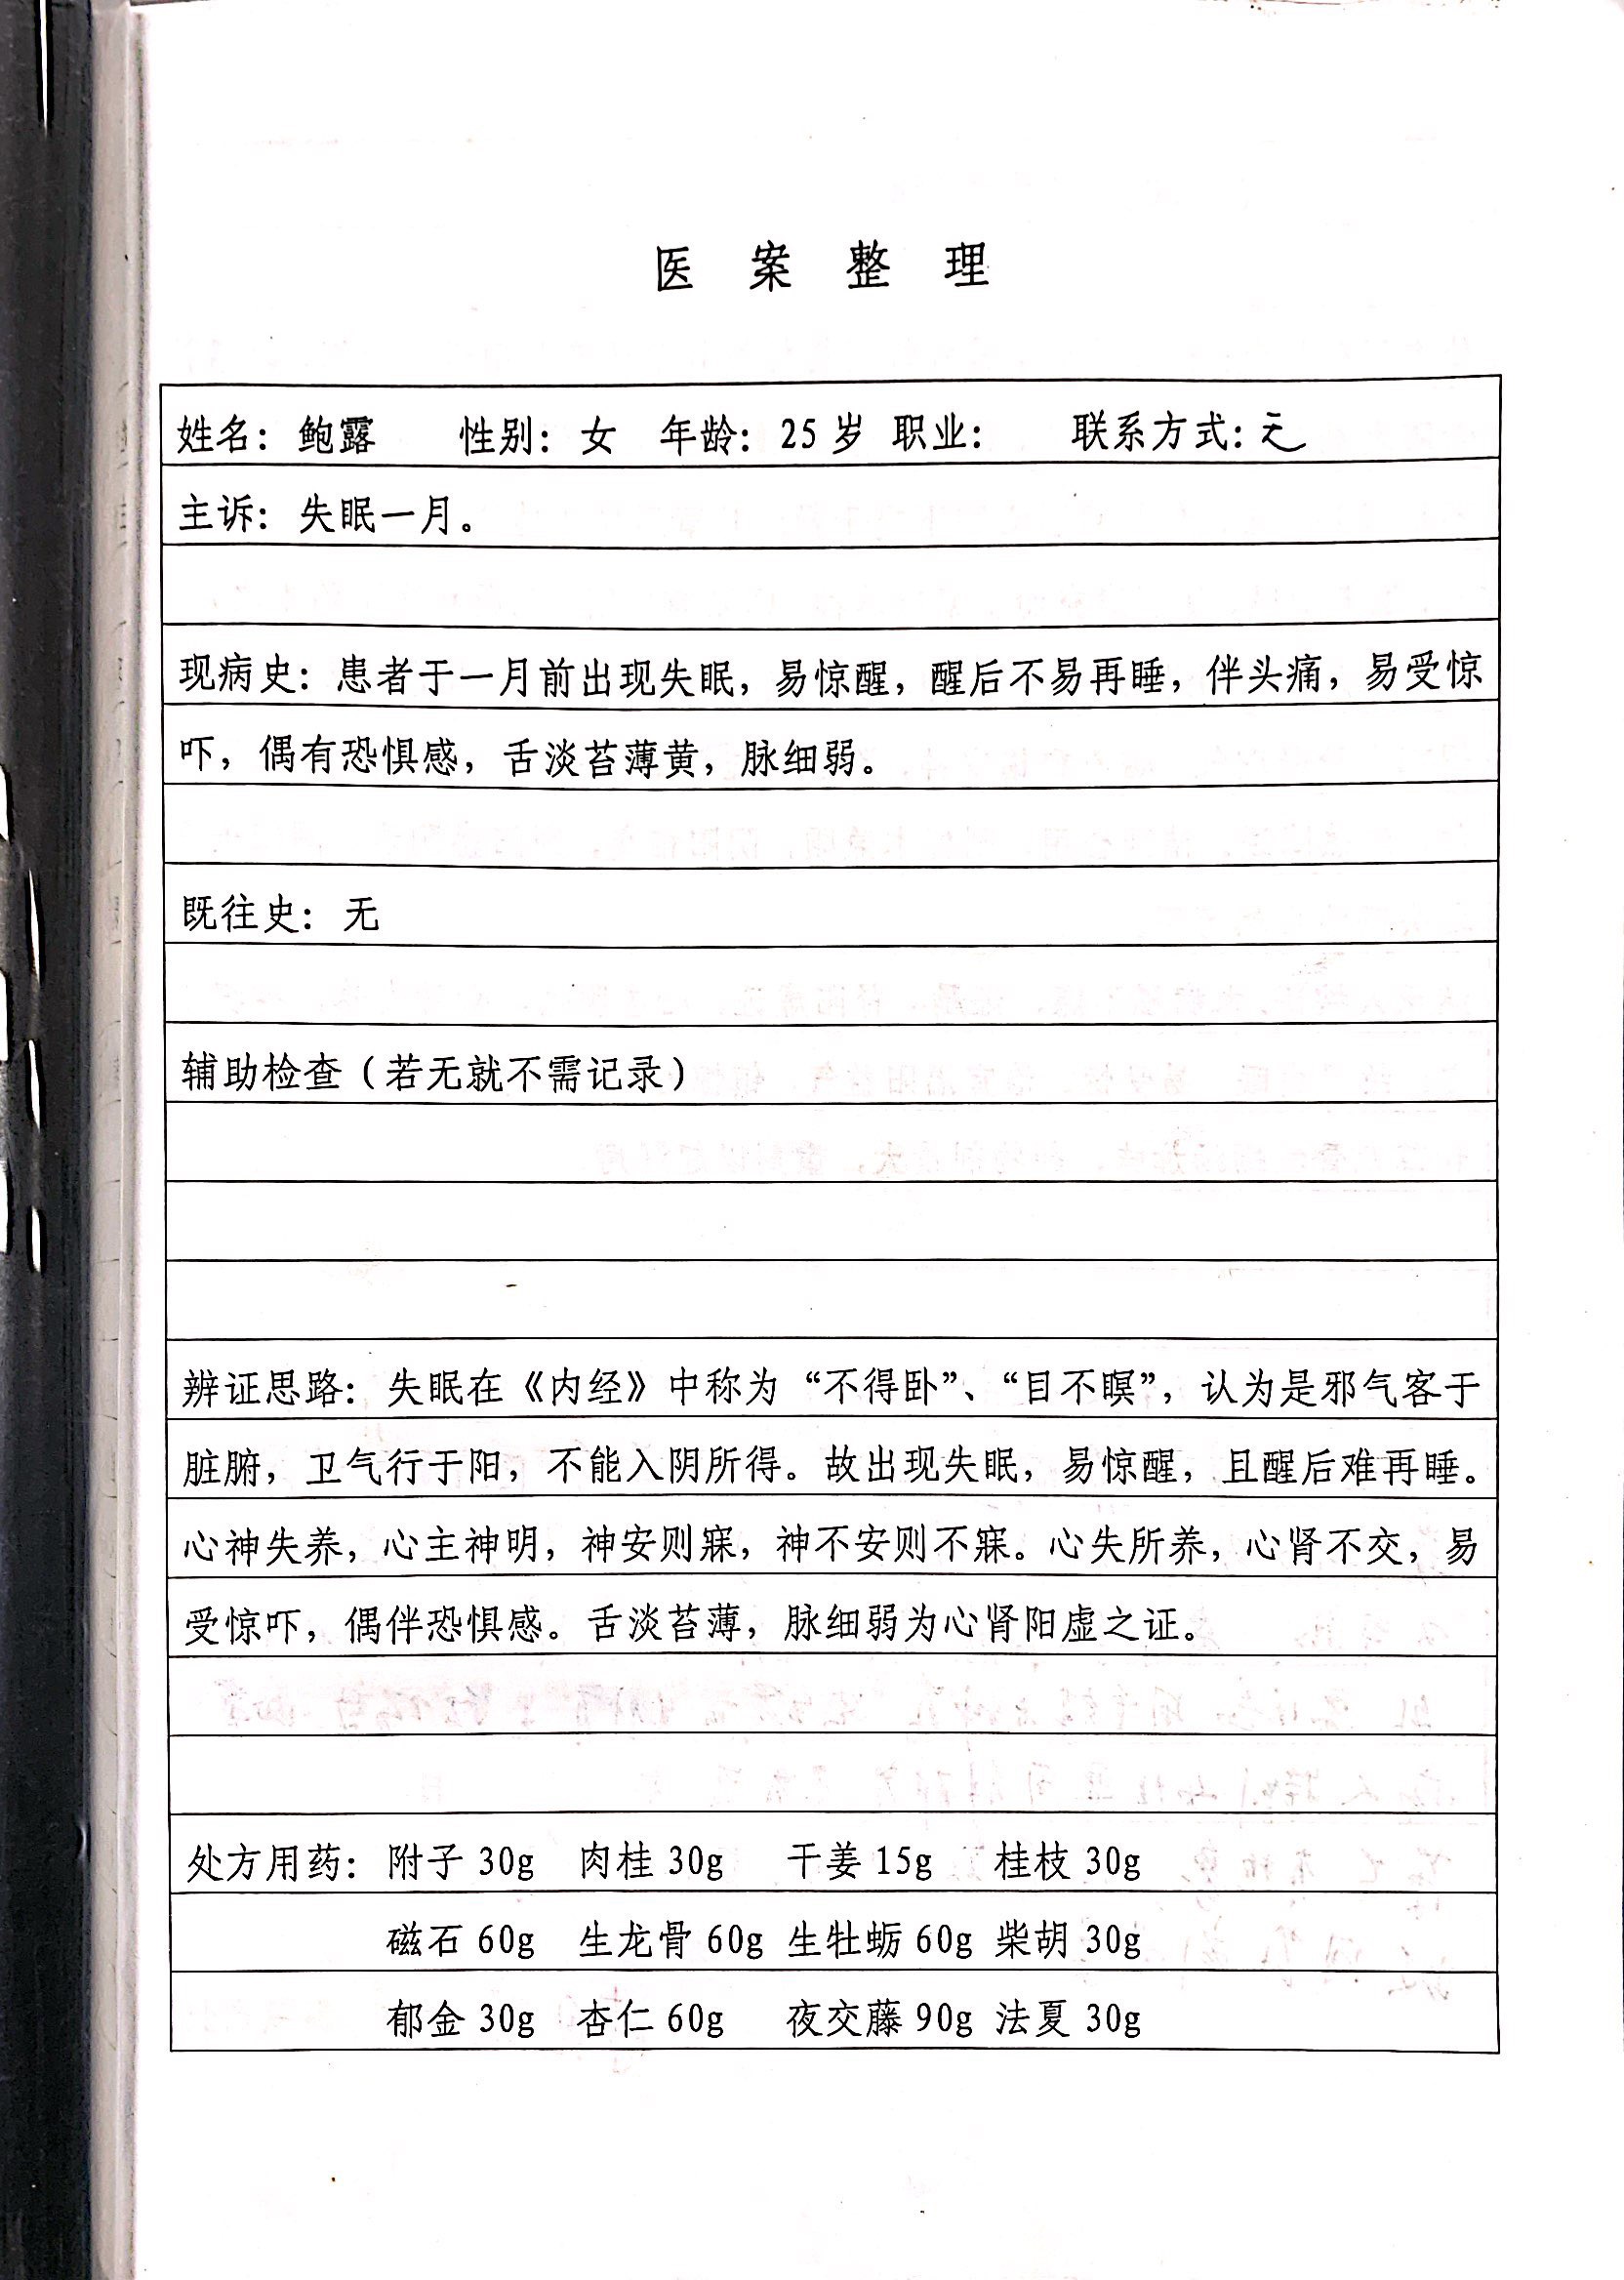 医案整理
姓名：鲍露 性别：女 年龄：25岁 职业： 联系方式：无
主诉：失眠一月。
现病史：患者于一月前出现失眠，易惊醒，醒后不易再睡，伴头痛，易受惊
吓，偶有恐惧感，舌淡苔薄黄，脉细弱。
既往史：无
辅助检查（若无就不需记录）
辨证思路：失眠在《内经》中称为“不得卧”、“目不瞑”，认为是邪气客于
脏腑，卫气行于阳，不能入阴所得。故出现失眠，易惊醒，且醒后难再睡。
心神失养，心主神明，神安则寐，神不安则不寐。心失所养，心肾不交，易
受惊吓，偶伴恐惧感。舌淡苔薄，脉细弱为心肾阳虚之证。
处方用药：附子 30g 肉桂 30g 干姜 15g 桂枝 30g
磁石 60g 生龙骨 60g 生牡蛎 60g 柴胡 30g
郁金 30g 杏仁 60g 夜交藤 90g 法夏 30g